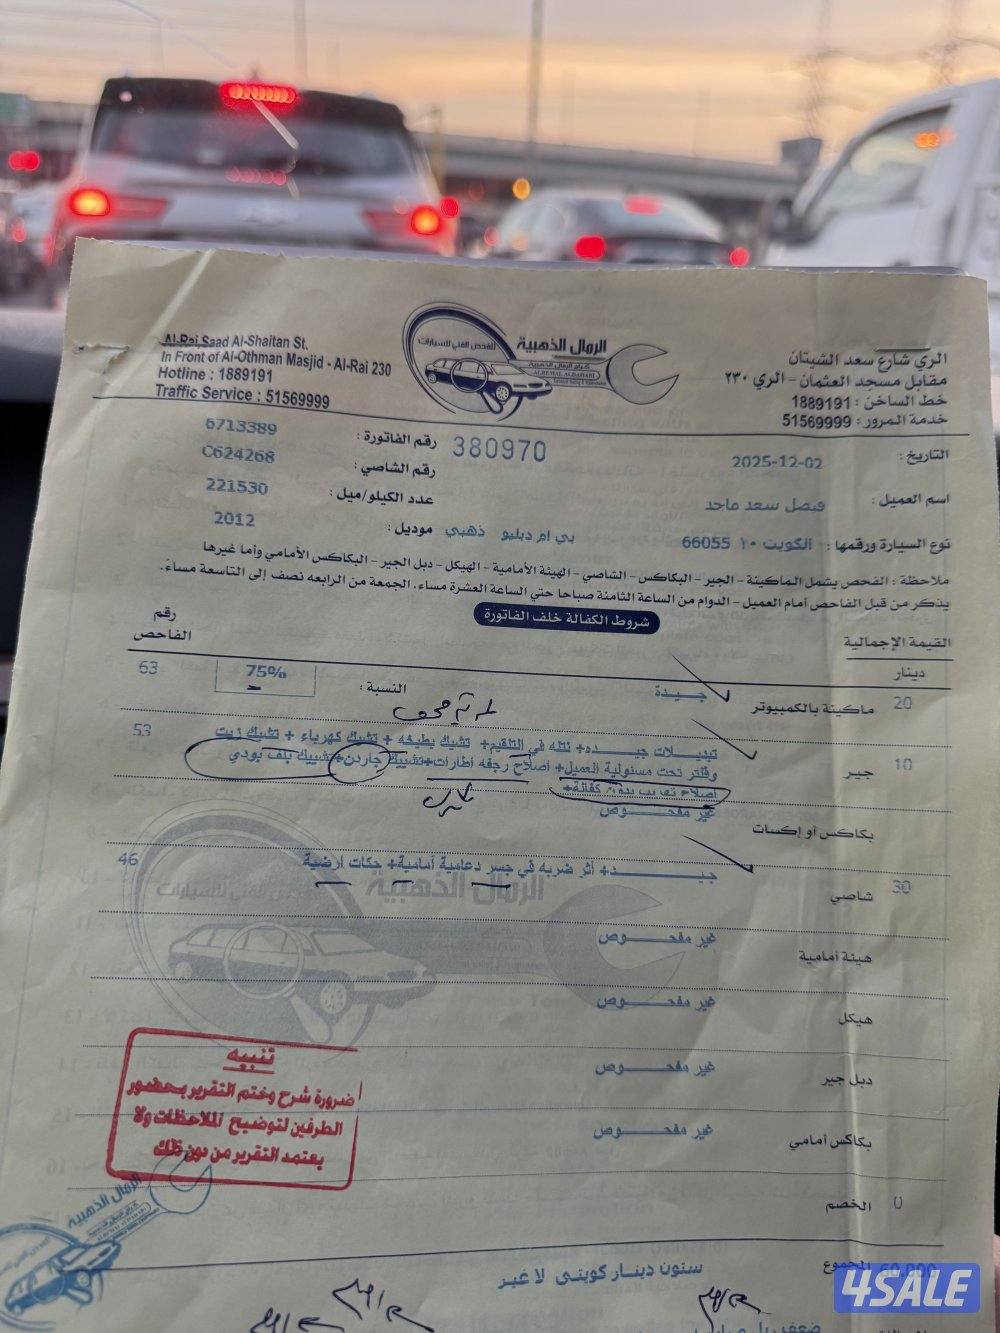 Al-Rai, Saad Al-Shaitan St.
In Front of Al-Othman Masjid - Al-Rai 230
Hotline : 1889191
Traffic Service : 51569999
الرمال الذهبية
للفحص الفني للسيارات
كراج الرمال الذهبية
ALREMAL ALDAHABI
الري شارع سعد الشيتان
مقابل مسجد العثمان - الري ٢٣٠
خط الساخن : 1889191
خدمة المرور : 51569999
التاريخ : 2025-12-02
380970
رقم الفاتورة : 6713389
رقم الشاصي : C624268
اسم العميل : فيصل سعد ماجد
عدد الكيلو/ميل : 221530
نوع السيارة ورقمها : الكويت ١٠ 66055 بي ام دبليو ذهبي
موديل : 2012
ملاحظة : الفحص يشمل الماكينة - الجير - البكاكس - الشاصي - الهيئة الأمامية - الهيكل - دبل الجير - البكاكس الأمامي وأما غيرها
يذكر من قبل الفاحص أمام العميل - الدوام من الساعة الثامنة صباحا حتي الساعة العشرة مساء. الجمعة من الرابعه نصف إلى التاسعة مساءً.
شروط الكفالة خلف الفاتورة
القيمة الإجمالية
دينار
رقم الفاحص
20 ماكينة بالكمبيوتر جيدة النسبة : 75% 63
10 جير تبديلات جيده+ نتله في التقيم+ تشيك بطيخه + تشيك كهرباء + تشيك زيت 53
وفلتر تحت مسئولية العميل+ اصلاح رجفه اطارات+تشييك جاردن+تشييك بلف بودي
اصلاح تهريب بدون كفالة+
بكاكس أو إكسات غير مفحوص
30 شاصي جيد+ أثر ضربه في جسر دعامية أمامية+ حكات ارضية 46
الرمال الذهبية
للفحص الفني للسيارات
هيئة أمامية غير مفحوص
هيكل غير مفحوص
دبل جير غير مفحوص
بكاكس أمامي غير مفحوص
تنبيه
ضرورة شرح وختم التقرير بحضور
الطرفين لتوضيح الملاحظات ولا
يعتمد التقرير من دون ذلك
الرمال الذهبية
0 الخصم
60.000 المجموع ستون دينار كويتي لا غير
4SALE